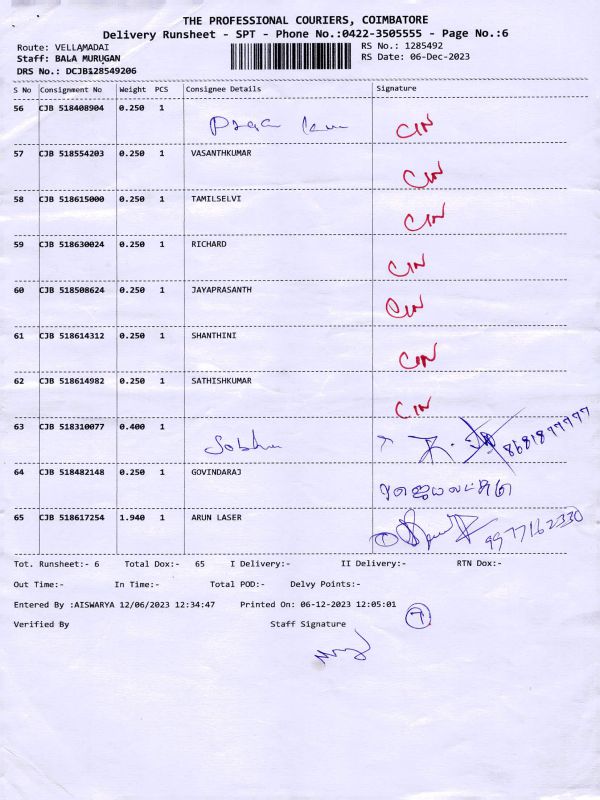 THE PROFESSIONAL COURIERS, COIMBATORE
Delivery Runsheet - SPT - Phone No.:0422-3505555 - Page No.:6
Route: VELLAMADAI
RS No.: 1285492
Staff: BALA MURUGAN
RS Date: 06-Dec-2023
DRS No.: DCJB128549206
S No Consignment No Weight PCS Consignee Details Signature
56 CJB 518408904 0.250 1 CIN
57 CJB 518554203 0.250 1 VASANTHKUMAR CIN
58 CJB 518615000 0.250 1 TAMILSELVI CIN
59 CJB 518630024 0.250 1 RICHARD CIN
60 CJB 518508624 0.250 1 JAYAPRASANTH CIN
61 CJB 518614312 0.250 1 SHANTHINI CIN
62 CJB 518614982 0.250 1 SATHISHKUMAR CIN
63 CJB 518310077 0.400 1 8681877777
64 CJB 518482148 0.250 1 GOVINDARAJ
65 CJB 518617254 1.940 1 ARUN LASER 9977162330
Tot. Runsheet:- 6 Total Dox:- 65 I Delivery:- II Delivery:- RTN Dox:-
Out Time:- In Time:- Total POD:- Delvy Points:-
Entered By :AISWARYA 12/06/2023 12:34:47 Printed On: 06-12-2023 12:05:01
Verified By Staff Signature 7